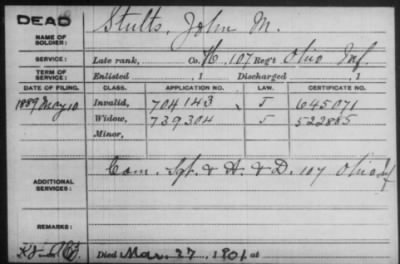 DEAD
NAME OF SOLDIER: Stults, John M.
SERVICE: Late rank, Co. H, 107 Reg't Ohio Inf.
TERM OF SERVICE: Enlisted , 1 Discharged , 1
DATE OF FILING. CLASS. APPLICATION NO. LAW. CERTIFICATE NO.
1889 May 10 Invalid, 704143 J 645071
Widow, 739304 J 522885
Minor,
ADDITIONAL SERVICES: Com. Sgt. & H. & D. 107 Ohio Inf
REMARKS:
Died Mar. 27, 1901, at